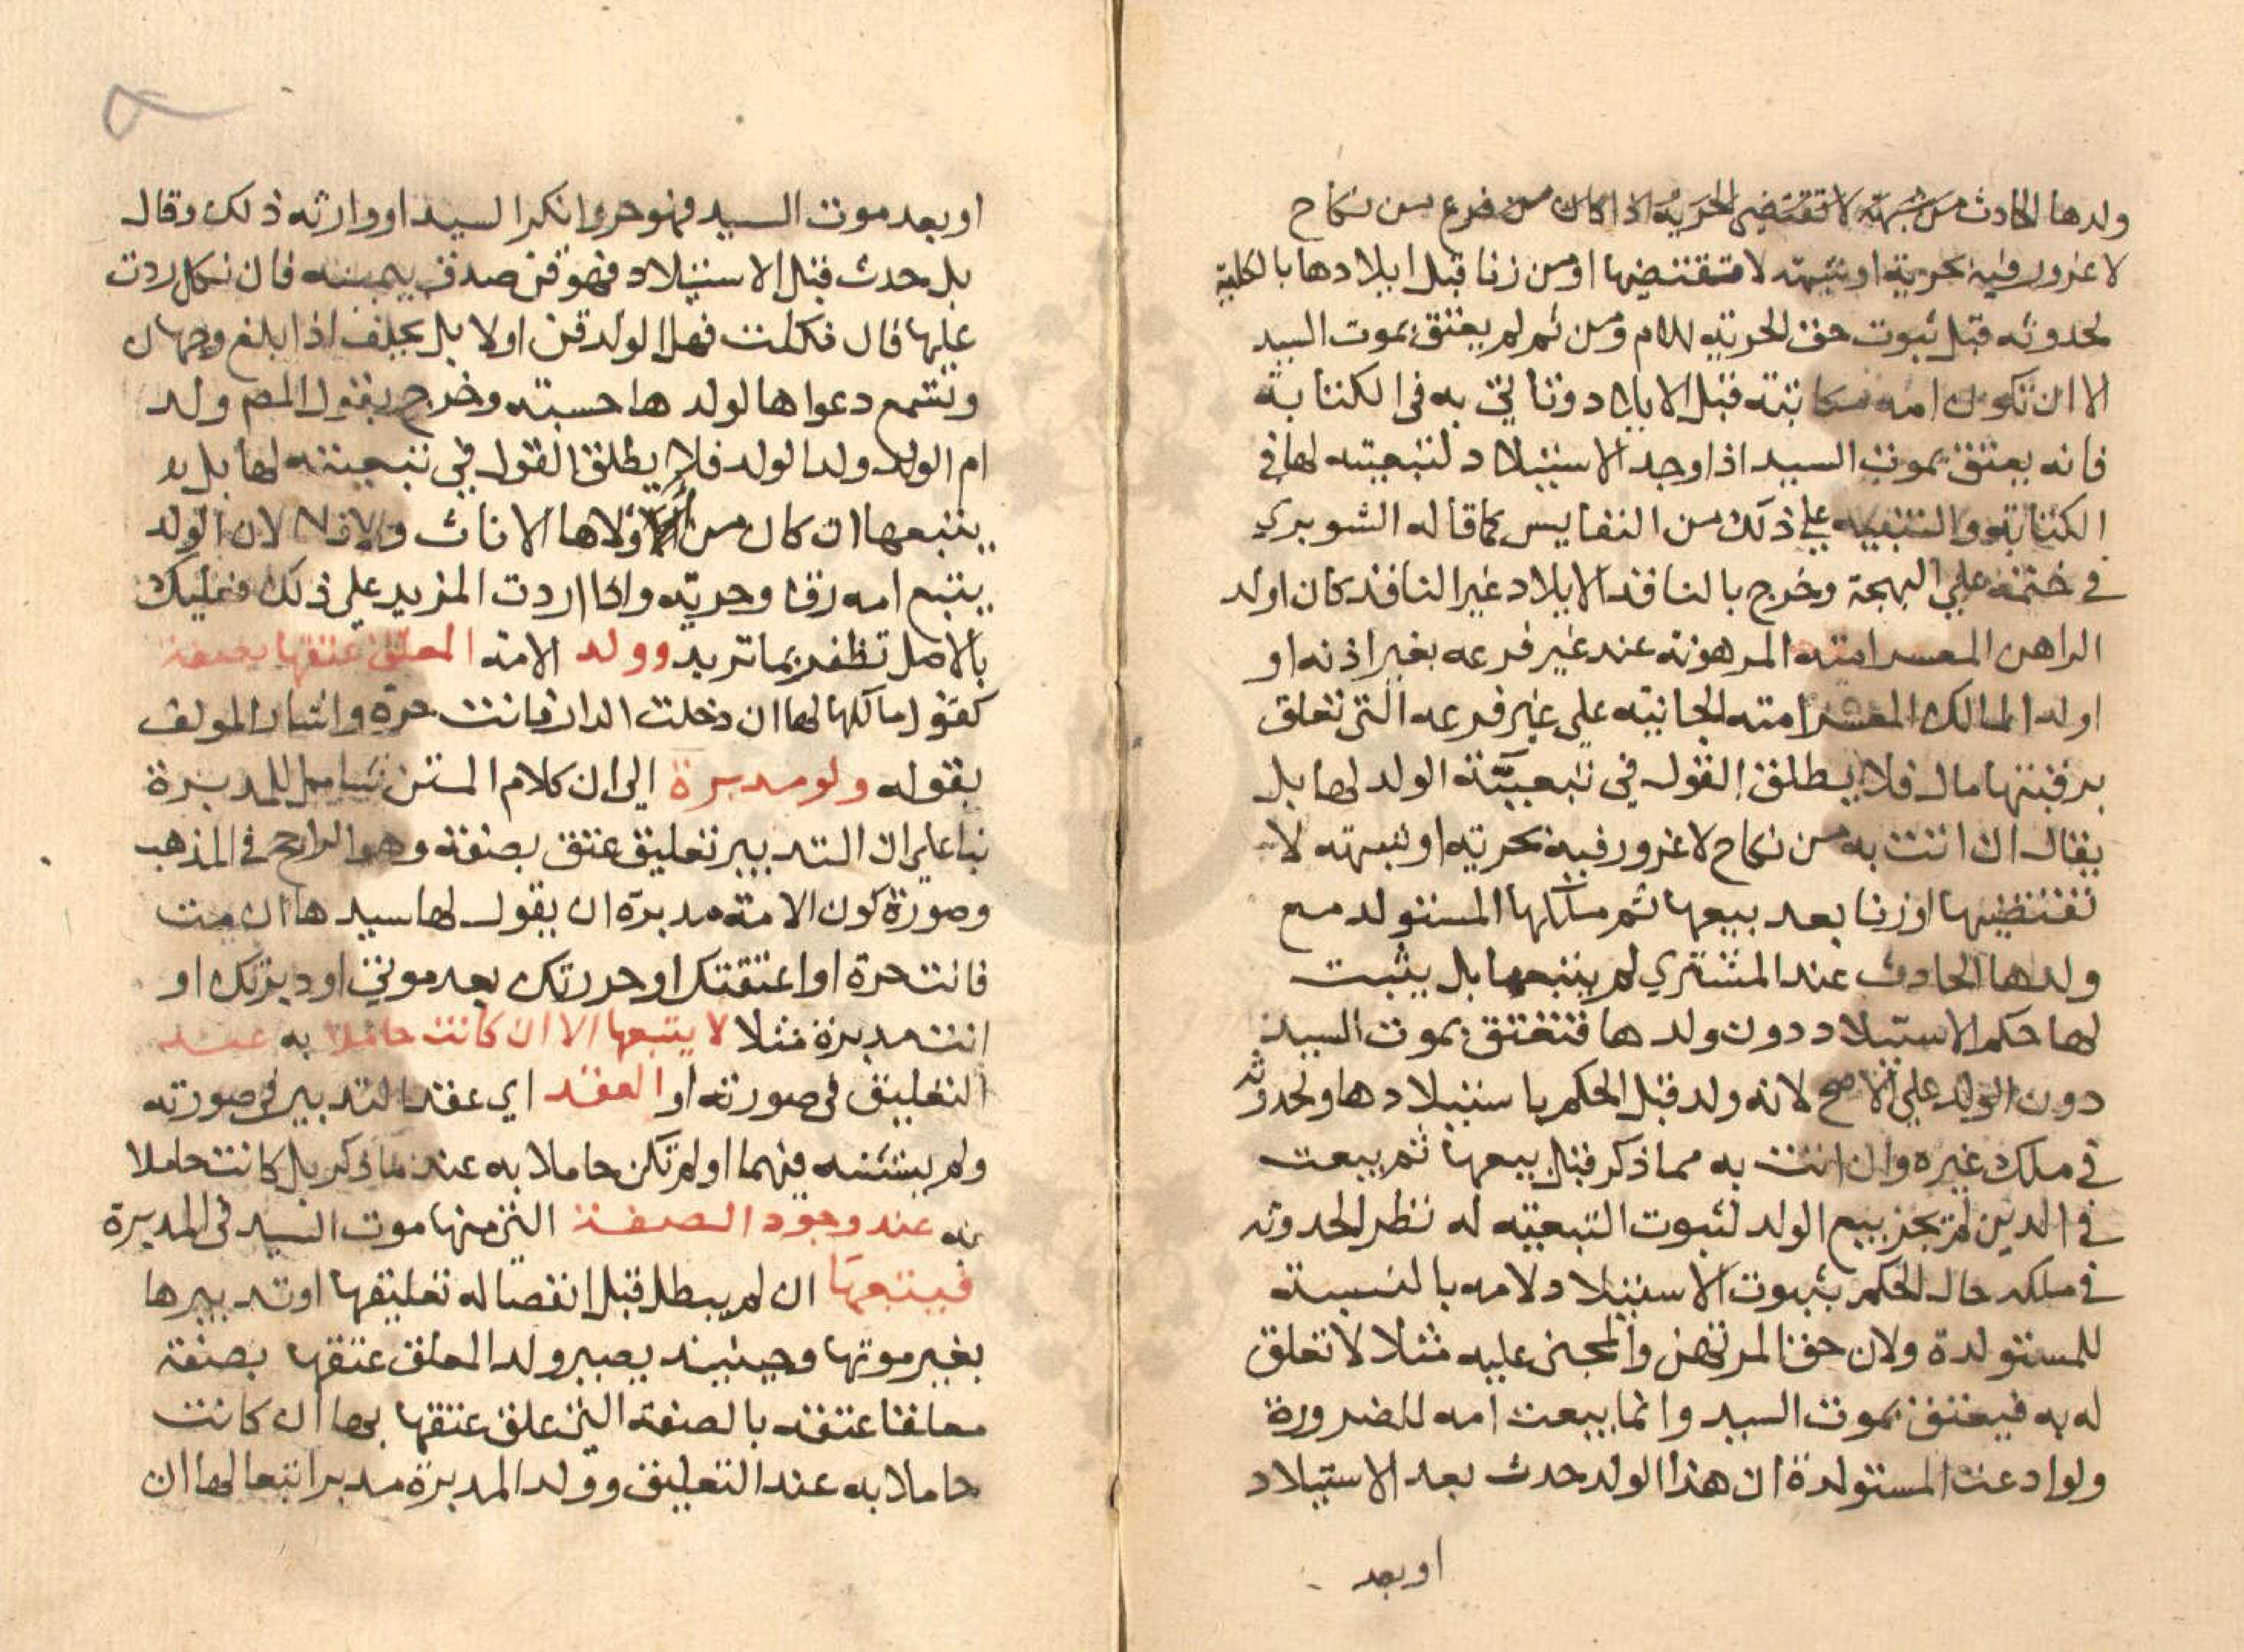 ولدها الحادث من شبهة لا تقتضي الحرية اذا كان من فرع من نكاح
لا غرور فيه بحرية او شبهة لا تقتضيها او من زنا قبل ايلادها بالكلية
لحدوثه قبل ثبوت حق الحرية للام ومن ثم لم يعتق بموت السيد
الا ان تكون امه مكاتبة قبل الايلاد وتاتي به في الكتابة
فانه يعتق بموت السيد اذا وجد الاستيلاد لتبعيته لها في
الكتابة والتنبيه علي ذلك من النفايس كما قاله الشوبري
في ختمه علي البهجة وخرج بالنافذ الايلاد غير النافذ كان اولد
الراهن المعسر امته المرهونة عند غير فرعه بغير اذنه او
اولد المالك المعسر امته الجانية علي غير فرعه التي تعلق
برقبتها مال فلا يطلق القول في تبعية الولد لها بل
يقال ان اتت به من نكاح لا غرور فيه بحرية او شبهة لا
تقتضيها او زنا بعد بيعها ثم ملكها المستولد مع
ولدها الحادث عند المشتري لم يتبعها بل يثبت
لها حكم الاستيلاد دون ولدها فتعتق بموت السيد
دون الولد علي الاصح لانه ولد قبل الحكم باستيلادها ولحدوثه
في ملك غيره وان اتت به مما ذكر قبل بيعها ثم بيعت
في الدين لم يجز بيع الولد لثبوت التبعية له نظرا لحدوثه
في ملكه حال الحكم بثبوت الاستيلاد لامه بالنسبة
للمستولدة ولان حق المرتهن والمجني عليه مثلا لا تعلق
له به فيعتق بموت السيد وانما بيعت امه للضرورة
ولو ادعت المستولدة ان هذا الولد حدث بعد الاستيلاد
او بعد
او بعد موت السيد فهو حر وانكر السيد او وارثه ذلك وقال
بل حدث قبل الاستيلاد فهو قن صدق بيمينه فان نكل ردت
عليها فان نكلت فهل الولد قن او لا بل يحلف اذا بلغ وجهان
وتسمع دعواها لولدها حسبة وخرج بقول المص ولد
ام الولد ولد الولد فلا يطلق القول في تبعيته لها بل
يتبعها ان كان من اولادها الاناث والا فلا لان الولد
يتبع امه رقا وحرية واذا اردت المزيد علي ذلك فعليك
بالاصل تظفر بما تريد وولد الامة المعلق عتقها بصفة
كقول مالكها لها ان دخلت الدار فانت حرة واشار المولف
بقوله ولو مدبرة الي ان كلام المتن شامل للمدبرة
بنا علي ان التدبير تعليق عتق بصفة وهو الراجح في المذهب
وصورة كون الامة مدبرة ان يقول لها سيدها ان مت
فانت حرة او اعتقتك او حررتك بعد موتي او دبرتك او
انت مدبرة مثلا لا يتبعها الا ان كانت حاملا به عند
التعليق في صورته او العقد اي عقد التدبير في صورته
ولم يستثنه فيهما او لم تكن حاملا به عند ما ذكر بل كانت حاملا
به عند وجود الصفة التي منها موت السيد في المدبرة
فيتبعها ان لم يبطل قبل انفصاله تعليقها او تدبيرها
بغير موتها وحينيذ يصير ولد المعلق عتقها بصفة
معلقا عتقه بالصفة التي علق عتقها بها ان كانت
حاملا به عند التعليق وولد المدبرة مدبرا تبعا لها ان